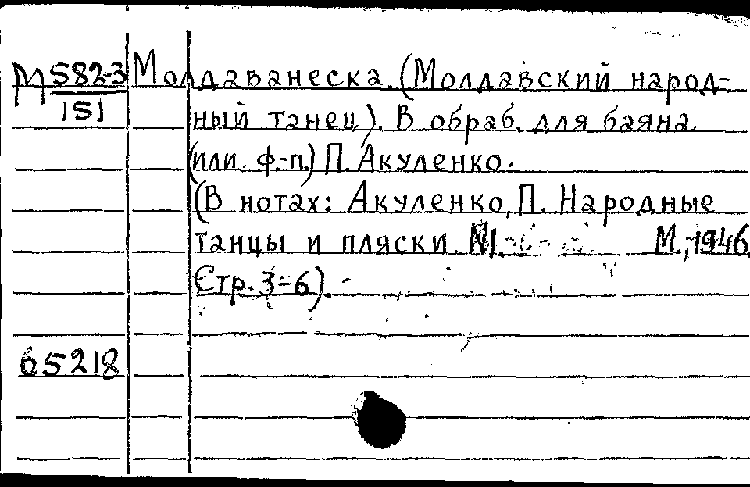 М 582-3 Молдаванеска. (Молдавский народ-
151 ный танец). В обраб. для баяна
(или ф.-п.) П. Акуленко.
(В нотах: Акуленко, П. Народные
танцы и пляски. №1. М., 1946.
Стр. 3-6).
65218